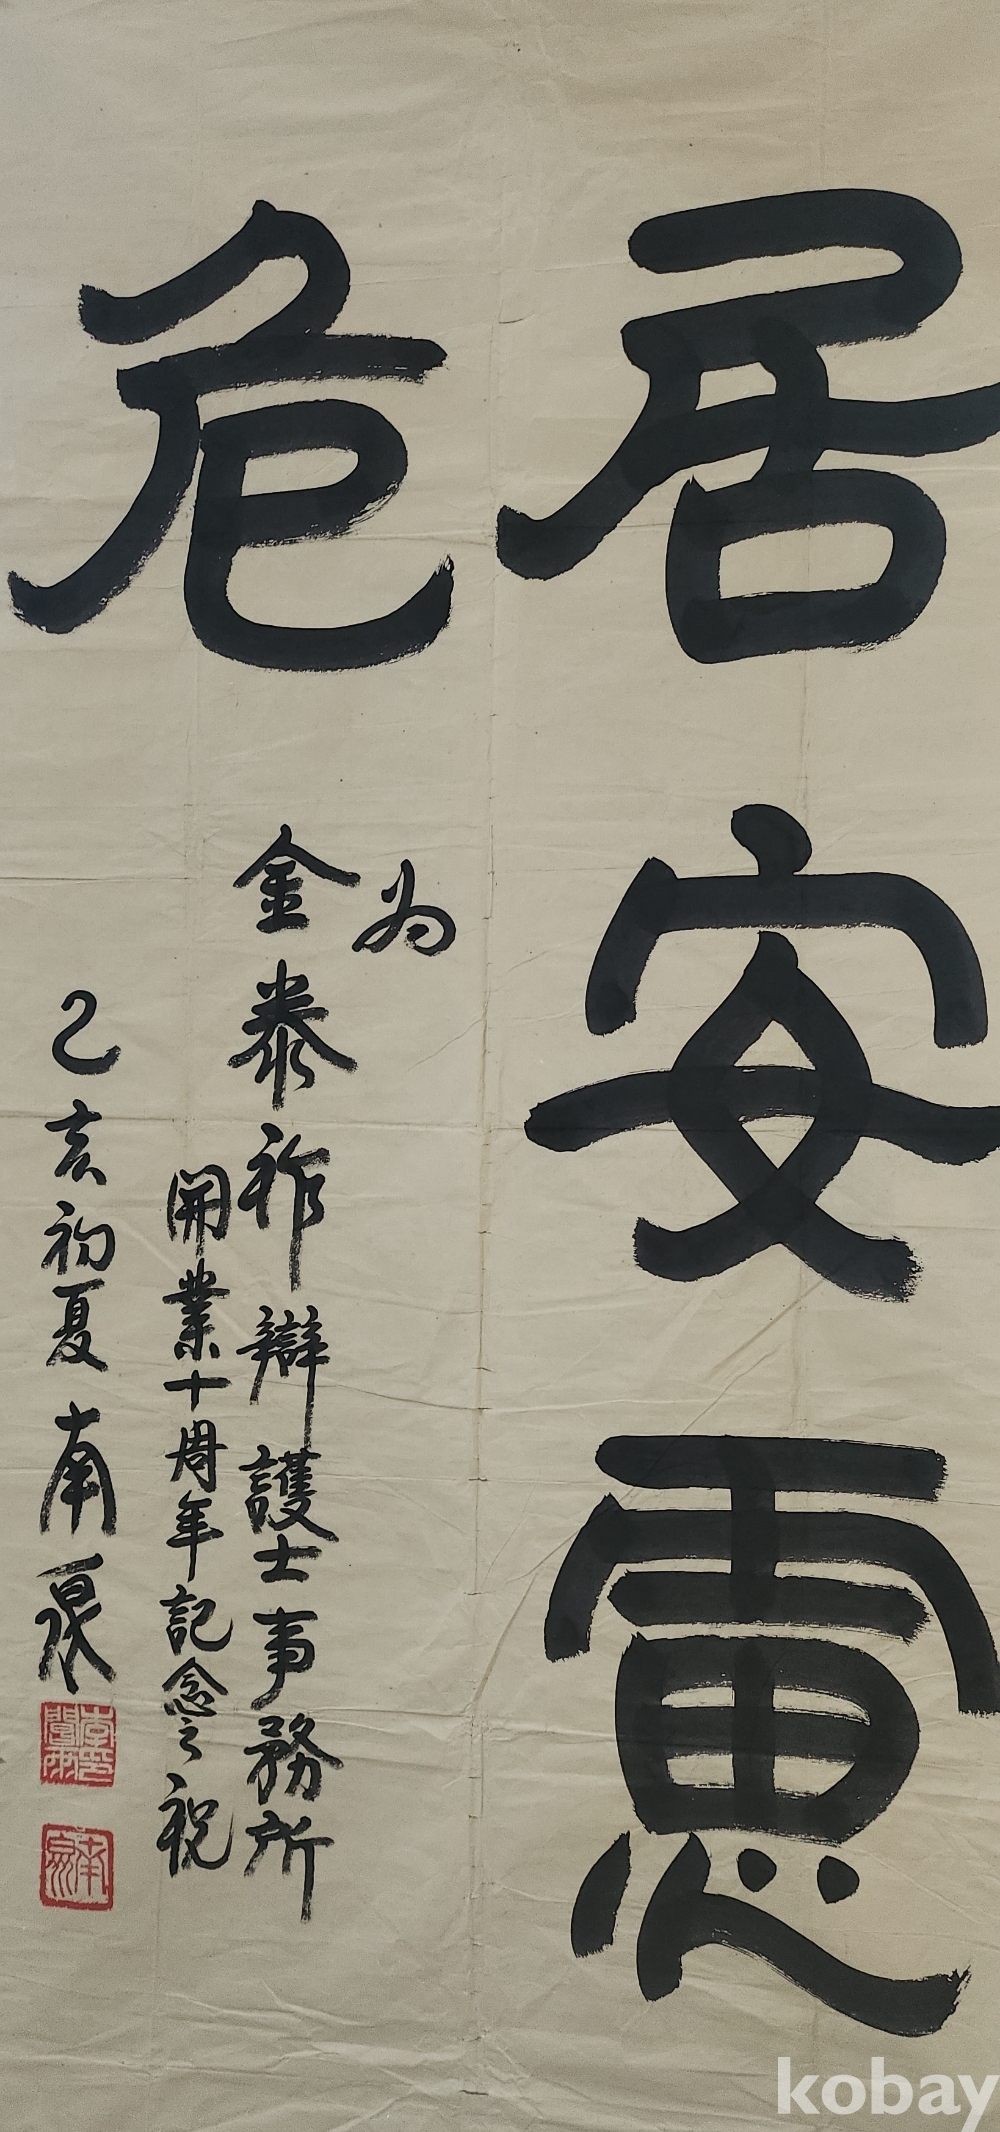 居安慮危
為
金泰祚辯護士事務所
開業十周年記念之祝
乙亥初夏 南泉
kobay